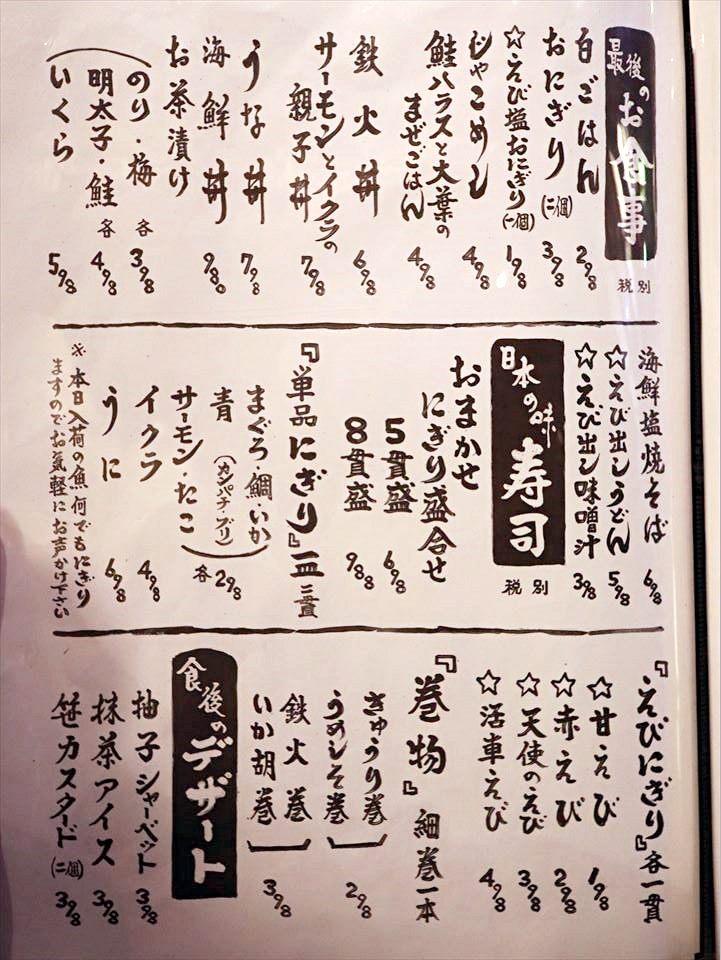 最後のお食事
税別
白ごはん 298
おにぎり(二個) 398
☆えび塩おにぎり(一個) 198
じゃこめし 498
鮭ハラスと大葉の
まぜごはん 498
鉄火丼 698
サーモンとイクラの
親子丼 798
うな丼 798
海鮮丼 980
お茶漬け
のり・梅 各398
明太子・鮭 各498
いくら 598
海鮮塩焼そば 698
☆えび出しうどん 598
☆えび出し味噌汁 398
日本の味 寿司
税別
おまかせ
にぎり盛合せ
5貫盛 698
8貫盛 998
『単品にぎり』一皿二貫
まぐろ・鯛・いか
青(カンパチ・ブリ)
サーモン・たこ
各298
イクラ 498
うに 698
※本日入荷の魚何でもにぎり
ますのでお気軽にお声かけ下さい
『えびにぎり』各一貫
☆甘えび 198
☆赤えび 298
☆天使のえび 398
☆活車えび 498
『巻物』細巻一本
きゅうり巻
うめしそ巻
298
鉄火巻
いか胡巻
398
食後のデザート
柚子シャーベット 398
抹茶アイス 398
笹カスタード(二個) 398